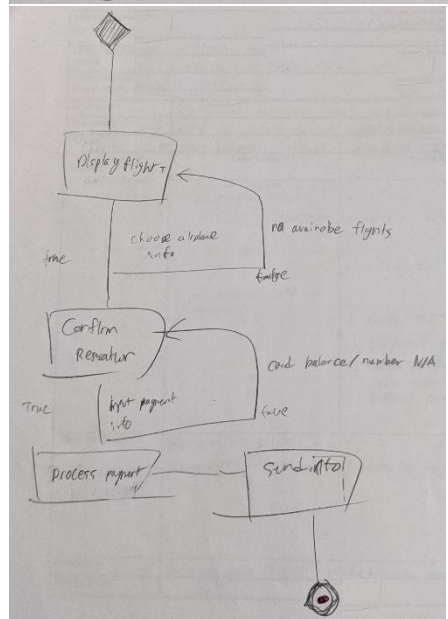 Display flight
no avairobe flights
choose airplane
info
true
false
Confirm
card balance/number N/A
True
input payment
info
false
process payment
send info